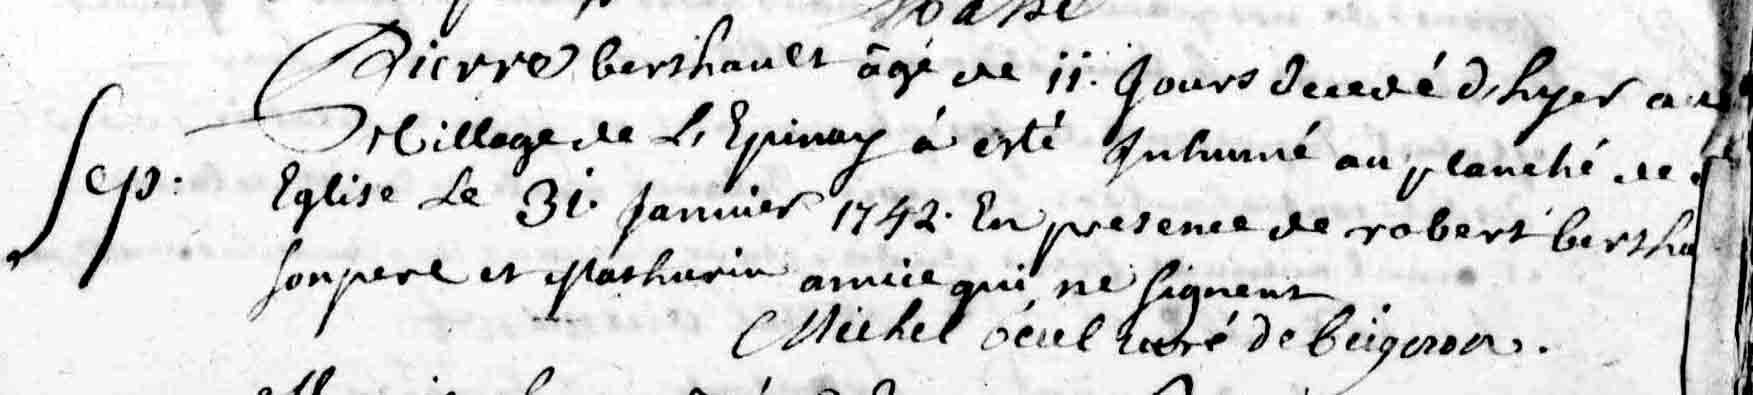 Sep:
Pierre berthault âgé de 11. Jours decedé d'hyer au
Village de L'Epinay à esté Inhumé au planché de
Eglise Le 31. Janvier 1742. En presence de robert bertha
son pere et Mathurin amice qui ne signent
Michel curé de